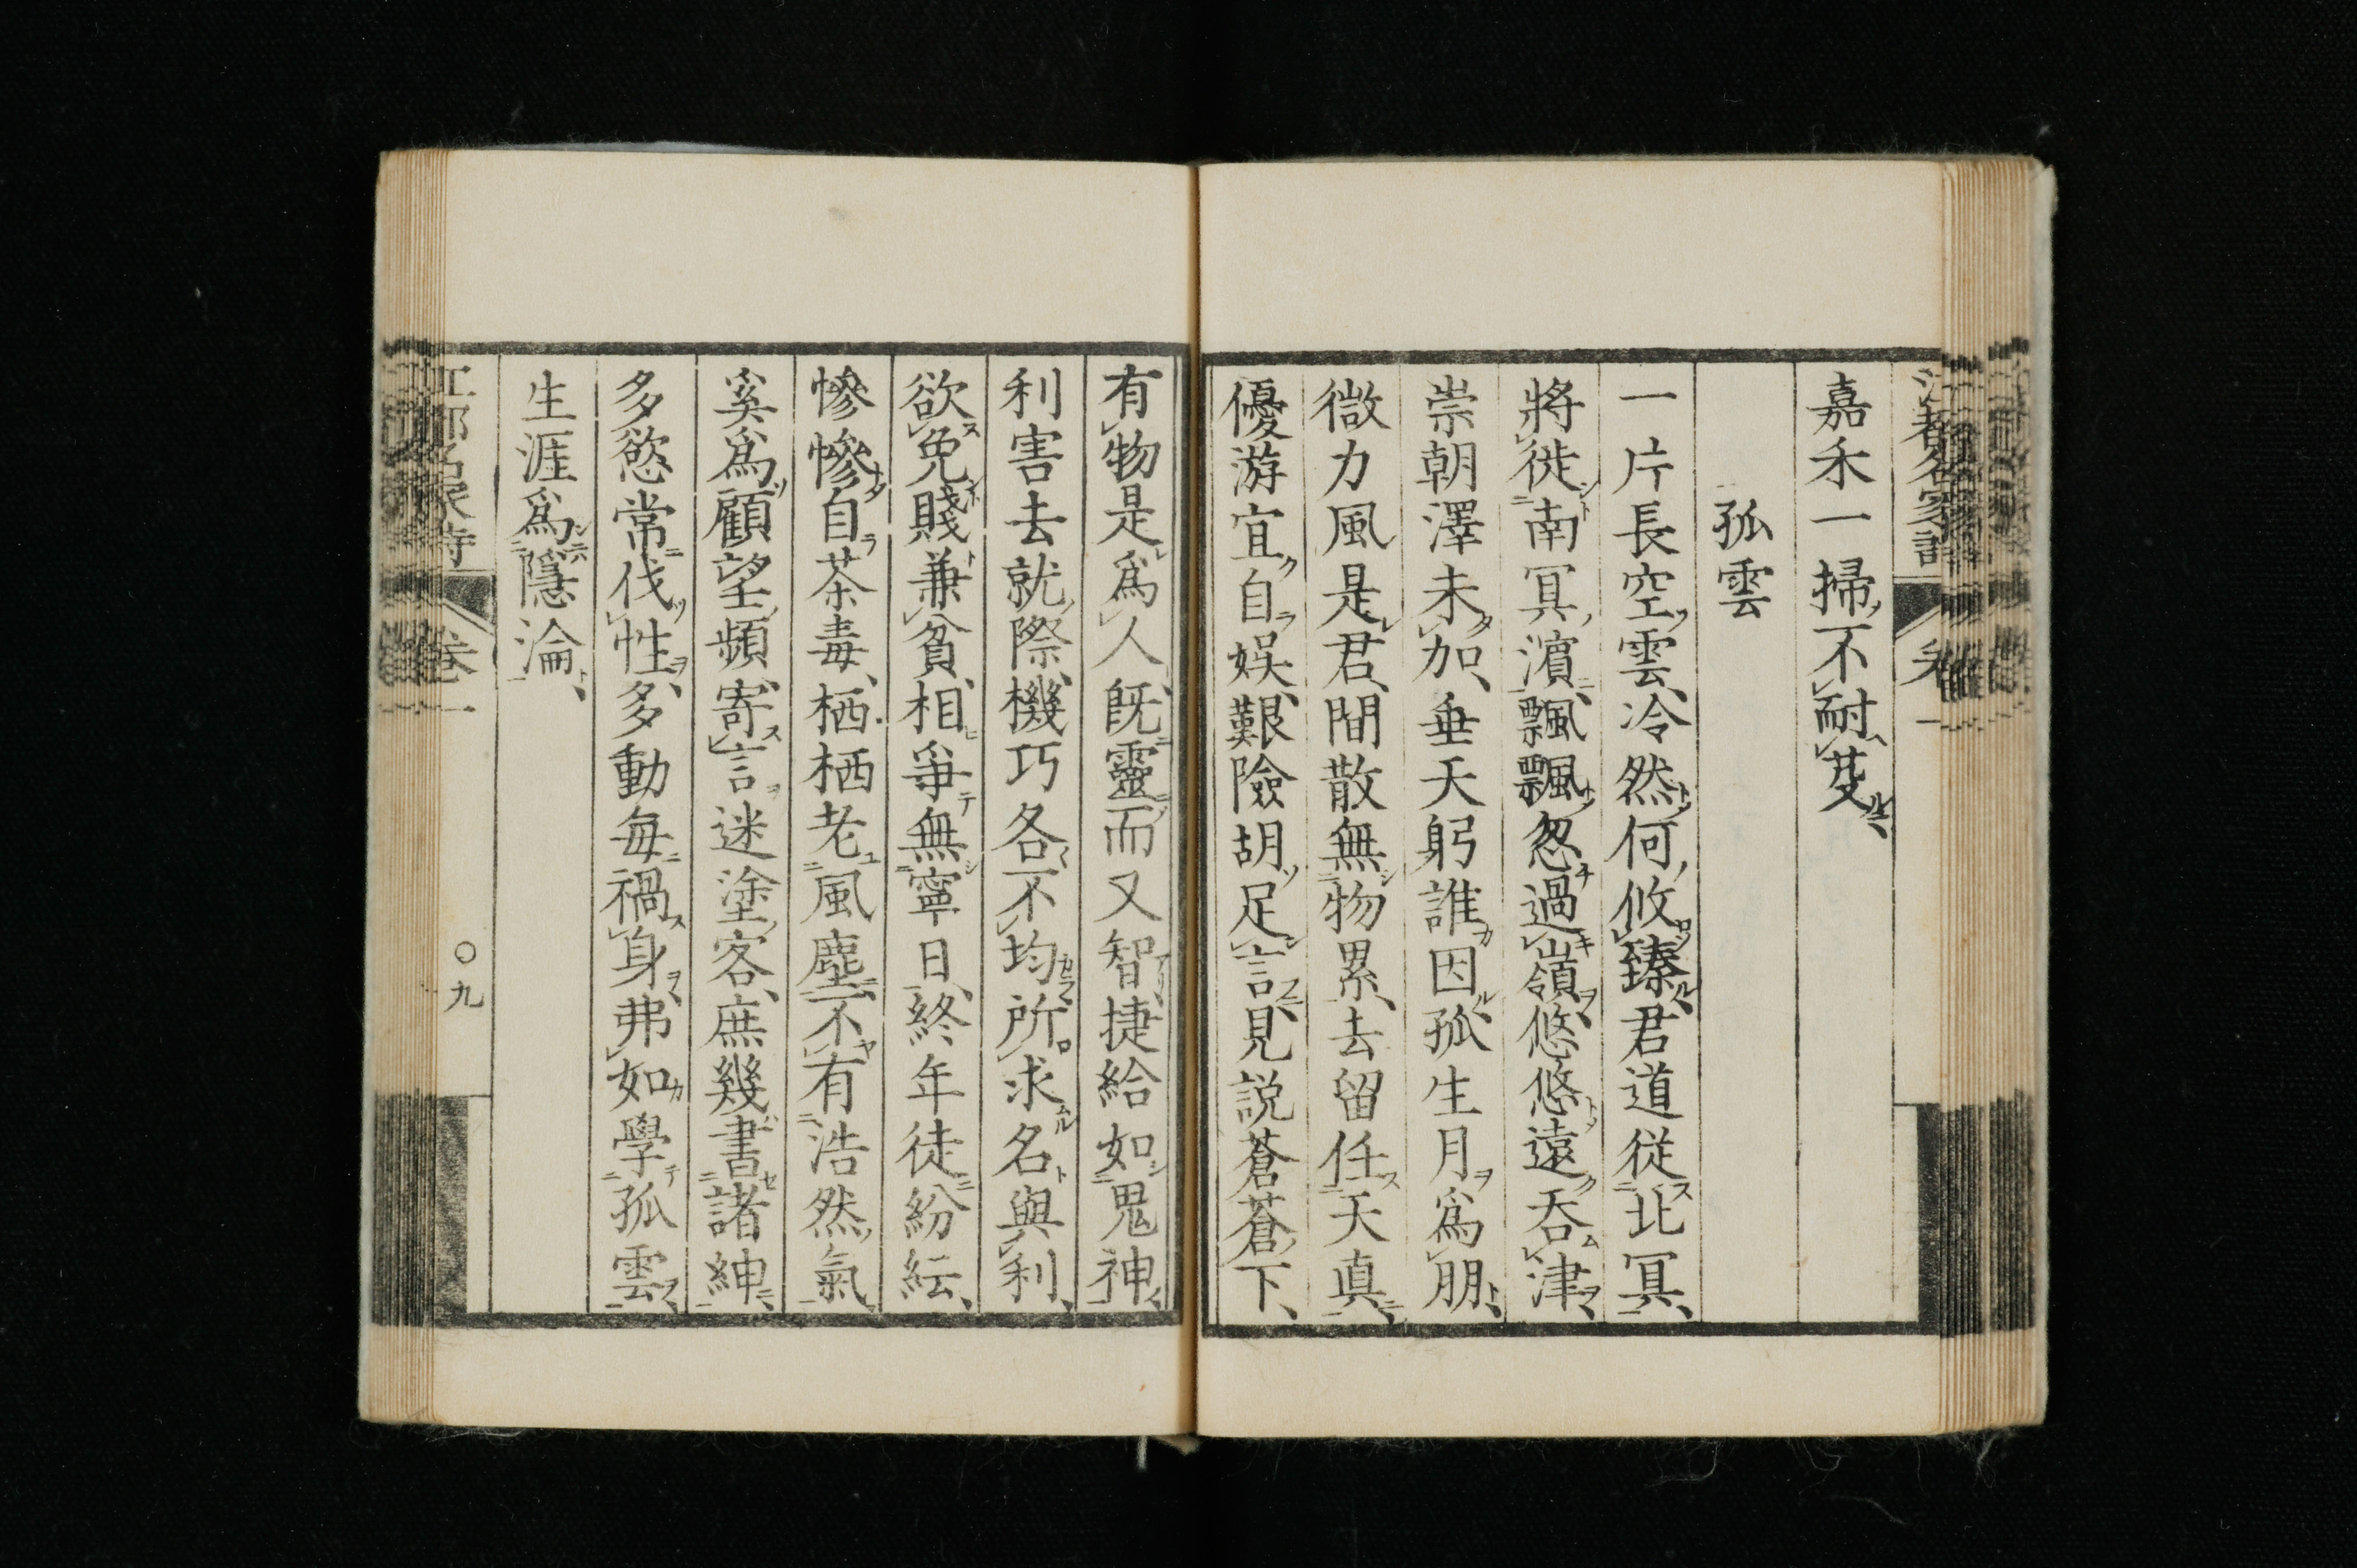 嘉禾一掃不耐芟
孤雲
一片長空雲冷然何攸臻君道從北冥
將徙南冥濵飄飄忽過嶺悠悠遠呑津
崇朝澤未加垂天躬誰因孤生月爲朋
微力風是君間散無物累去留任天真
優游宜自娯艱險胡足言見説蒼蒼下
有物是爲人既靈而又智捷給如鬼神
利害去就際機巧各不均所求名與利
欲免賤兼貧相爭無寧日終年徒紛紜
慘慘自荼毒栖栖老風塵不有浩然氣
奚爲顧望頻寄言迷塗客庶幾書諸紳
多慾常伐性多動毎禍身弗如學孤雲
生涯爲隱淪
卷一
九